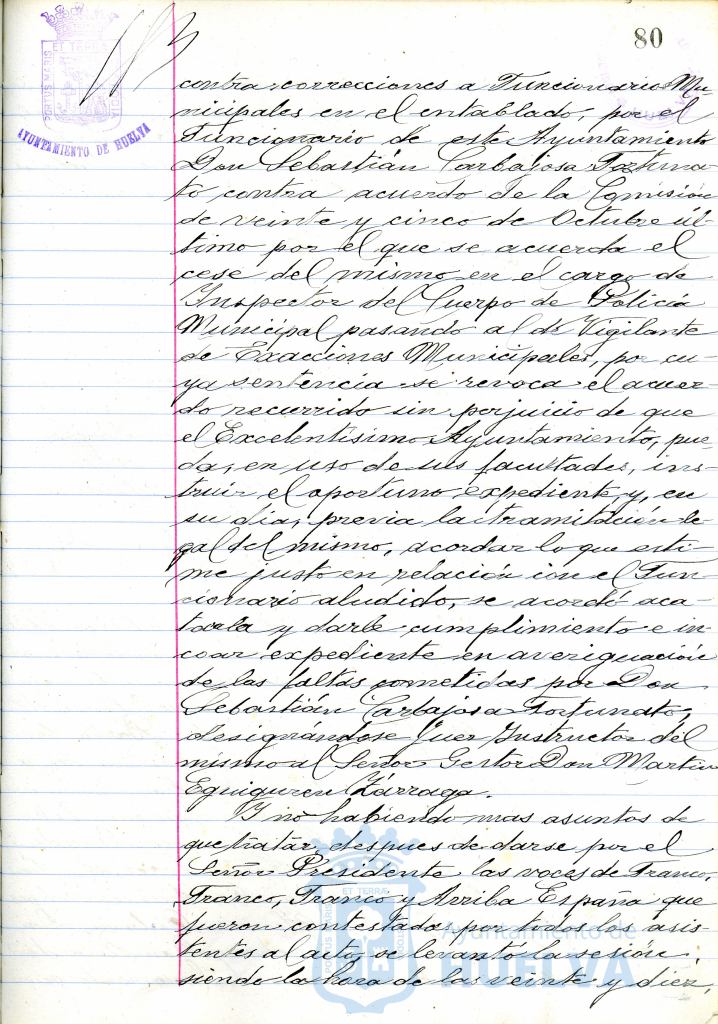 80
PORTUS MARIS ET TERRÆ CUSTODIA
AYUNTAMIENTO DE HUELVA
contra correcciones a Funcionarios Mu-
nicipales en el entablado, por el
Funcionario de este Ayuntamiento
Don Sebastián Carbajosa Fortuna-
to contra acuerdo de la Comisión
de veinte y cinco de Octubre úl-
timo por el que se acuerda el
cese del mismo en el cargo de
Inspector del Cuerpo de Policia
Municipal pasando al de Vigilante
de Exacciones Municipales, por cu-
ya sentencia se revoca el acuer-
do recurrido sin perjuicio de que
el Excelentisimo Ayuntamiento, pue-
da, en uso de sus facultades, ins-
truir el oportuno expediente y, en
su dia, previa la tramitación le-
gal del mismo, acordar lo que esti-
me justo en relación con el Fun-
cionario aludido, se acordó aca-
tarla y darle cumplimiento e in-
coar expediente en averiguación
de las faltas cometidas por Don
Sebastián Carbajosa Fortunato,
designándose Juez Instructor del
mismo al Señor Gestor Don Martin
Eguiguren Zárraga.
Y no habiendo mas asuntos de
que tratar, despues de darse por el
Señor Presidente las voces de Franco,
Franco, Franco y Arriba España que
fueron contestadas por todos los asis-
tentes al acto, se levantó la sesión,
siendo la hora de las veinte y diez,
ET TERRÆ
PORTUS MARIS CUSTODIA
Ayuntamiento de
HUELVA